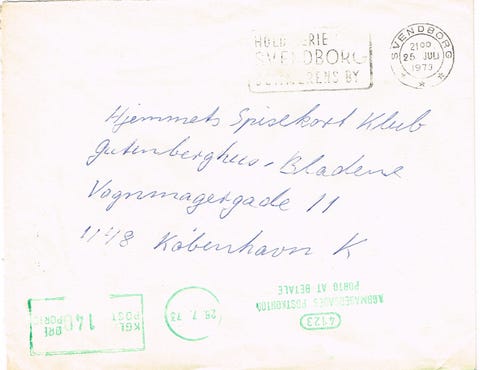 HOLD FERIE I
SVENDBORG
SOMMERENS BY
SVENDBORG
21 00
25 JULI
1973
Hjemmets Spisekort Klub
Gutenberghus-Bladene
Vognmagergade 11
1148 København K
KØBMAGERGADES POSTKONTOR
PORTO AT BETALE
4123
28.7.73
KGL
POST
140
ØRE
PORTO